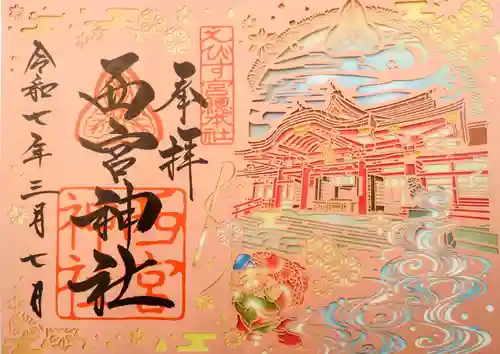 奉拝
えびす宮総本社
西宮神社
西宮神社
令和七年三月七日